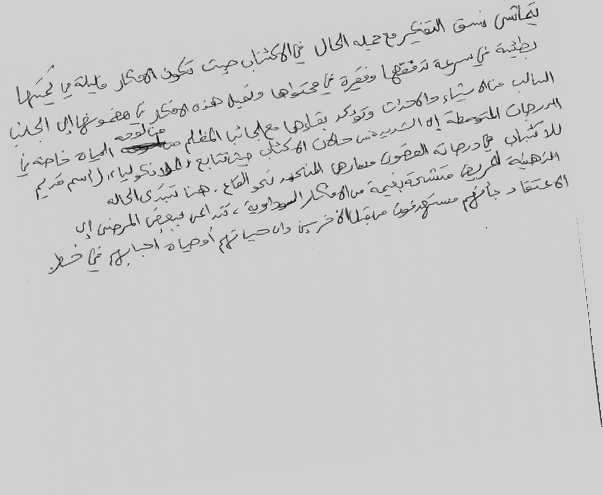 يتماشى نسق التفكير مع حيله الحال في الاكتئاب حيث تكون الافكار قليلة في كميتها
بطيئة في سرعة تدفقها وفقيرة في محتواها وتميل هذه الافكار في مضمونها إلى الجانب
السالب من الاشياء والاحداث وتؤكد بقاءها مع الجانب المظلم من الحياة خاصة في
الدرجات المتوسطة إلى الشديدة من حالات الاكتئاب حيث تتابع (اسم قديم
للاكتئاب في درجاته القصوى مسارها نحو القاع. هنا تتبدى الحاله
الذهنية للمريض متشحة بغيمة من الافكار السوداوية، تتداعى ببعض المرضى إلى
الاعتقاد بأنهم مستهدفون من قبل الأخرين وان حياتهم أو حياة احبابهم في خطر